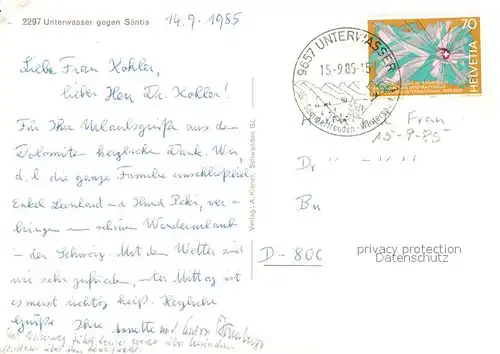 2297 Unterwasser gegen Säntis
14.9.1985
Liebe Frau Kohler,
lieber Herr Dr. Kohler!
Für Ihre Urlaubsgrüße aus den
Dolomiten herzlichen Dank. Wir,
d.h. die ganze Familie einschließlich
Enkel Leonhard und Hund Peki, ver-
bringen einen schönen Wanderurlaub
in der Schweiz. Mit dem Wetter sind
wir sehr zufrieden, unter Mittag ist
es meist richtig heiß. Herzliche
Grüße Ihre Annette und
Verlag: A. Kleiner, Schwanden GL
9657 UNTERWASSER
15-9.85-15
70
HELVETIA
Frau
15-9-85
Dr K
D-800
privacy protection
Datenschutz